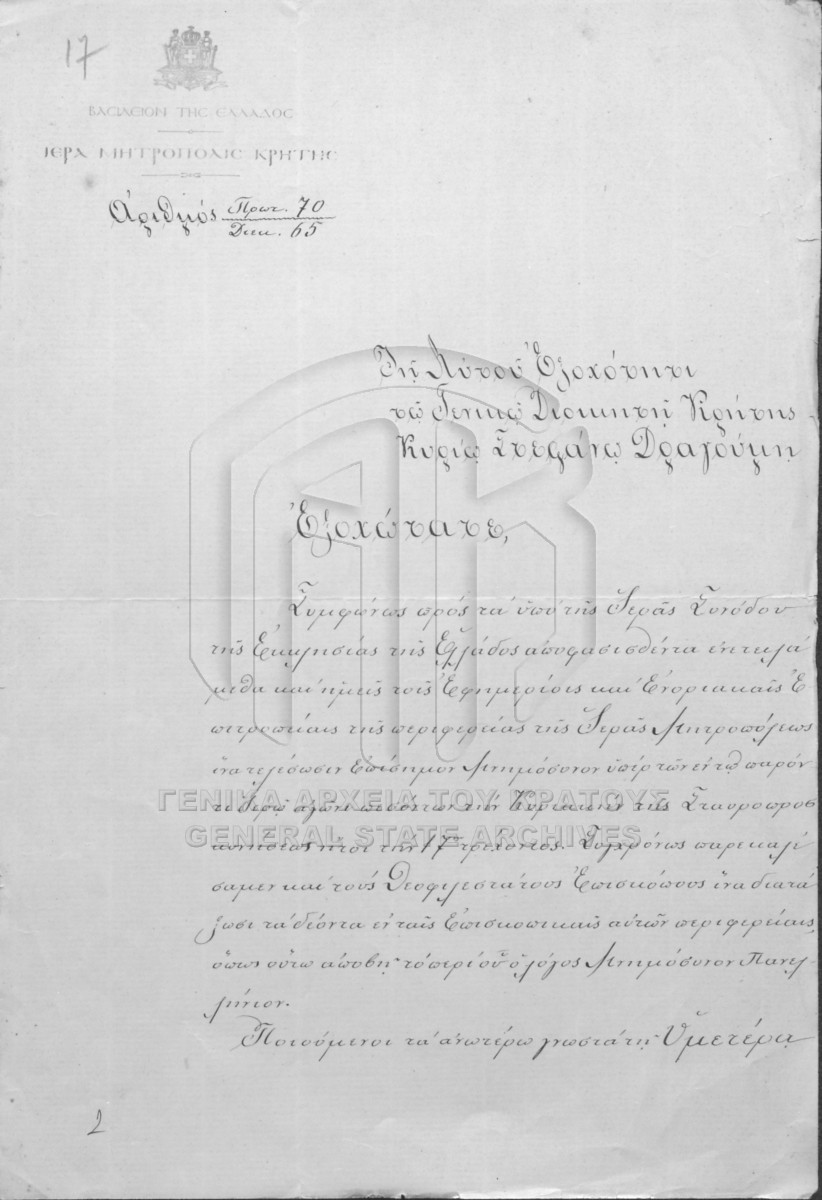 17
ΒΑΣΙΛΕΙΟΝ ΤΗΣ ΕΛΛΑΔΟΣ
ΙΕΡΑ ΜΗΤΡΟΠΟΛΙΣ ΚΡΗΤΗΣ
Ἀριθμός Πρωτ. 70
Διεκ. 65
Τῇ Αὐτοῦ Ἐξοχότητι
τῷ Γενικῷ Διοικητῇ Κρήτης
Κυρίῳ Στεφάνῳ Δραγούμῃ
Ἐξοχώτατε,
Συμφώνως πρός τά ὑπό τῆς Ἱερᾶς Συνόδου
τῆς Ἐκκλησίας τῆς Ἑλλάδος ἀποφασισθέντα ἐνετειλά
μεθα καί ἡμεῖς τοῖς Ἐφημερίοις καί Ἐνοριακαῖς Ἐ
πιτροπείαις τῆς περιφερείας τῆς Ἱερᾶς Μητροπόλεως
ἵνα τελέσωσιν ἐπίσημον Μνημόσυνον ὑπέρ τῶν ἐν τῷ παρόν
τι Ἱερῷ ἀγῶνι πεσόντων τήν Κυριακήν τῆς Σταυροπροσ
κυνήσεως ἤτοι τήν 17 τρέχοντος. Συγχρόνως παρεκαλέ
σαμεν καί τούς Θεοφιλεστάτους Ἐπισκόπους ἵνα διατά
ξωσι τά δέοντα ἐν ταῖς Ἐπισκοπικαῖς αὐτῶν περιφερείαις
ὅπως οὕτω ἀποβῇ τό περί οὗ ὁ λόγος Μνημόσυνον Πανελ
λήνιον.
Ποιούμενοι τά ἀνωτέρω γνωστά τῇ Ὑμετέρᾳ
2
ΓΕΝΙΚΑ ΑΡΧΕΙΑ ΤΟΥ ΚΡΑΤΟΥΣ
GENERAL STATE ARCHIVES